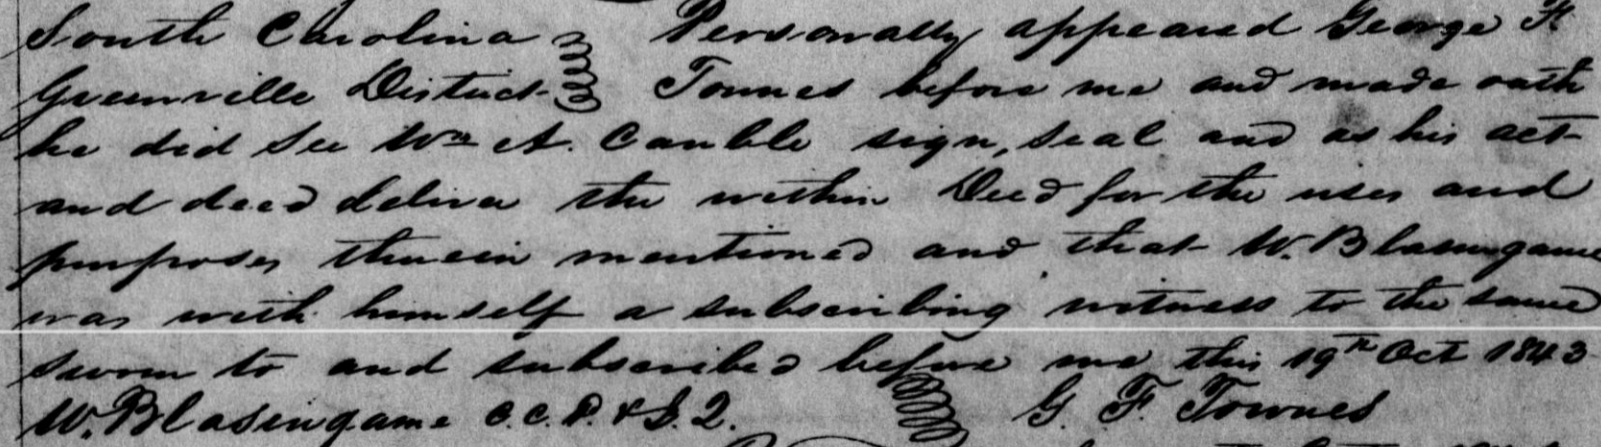 South Carolina } Personally appeared George F
Greenville District } Townes before me and made oath
he did see Wm A. Cauble sign, seal and as his act
and deed deliver the within Deed for the uses and
purposes therein mentioned and that W. Blasingame
was with himself a subscribing witness to the same
sworn to and subscribed before me this 19th Oct 1843
W. Blasingame C.C.P. & J.Q. } G. F. Townes